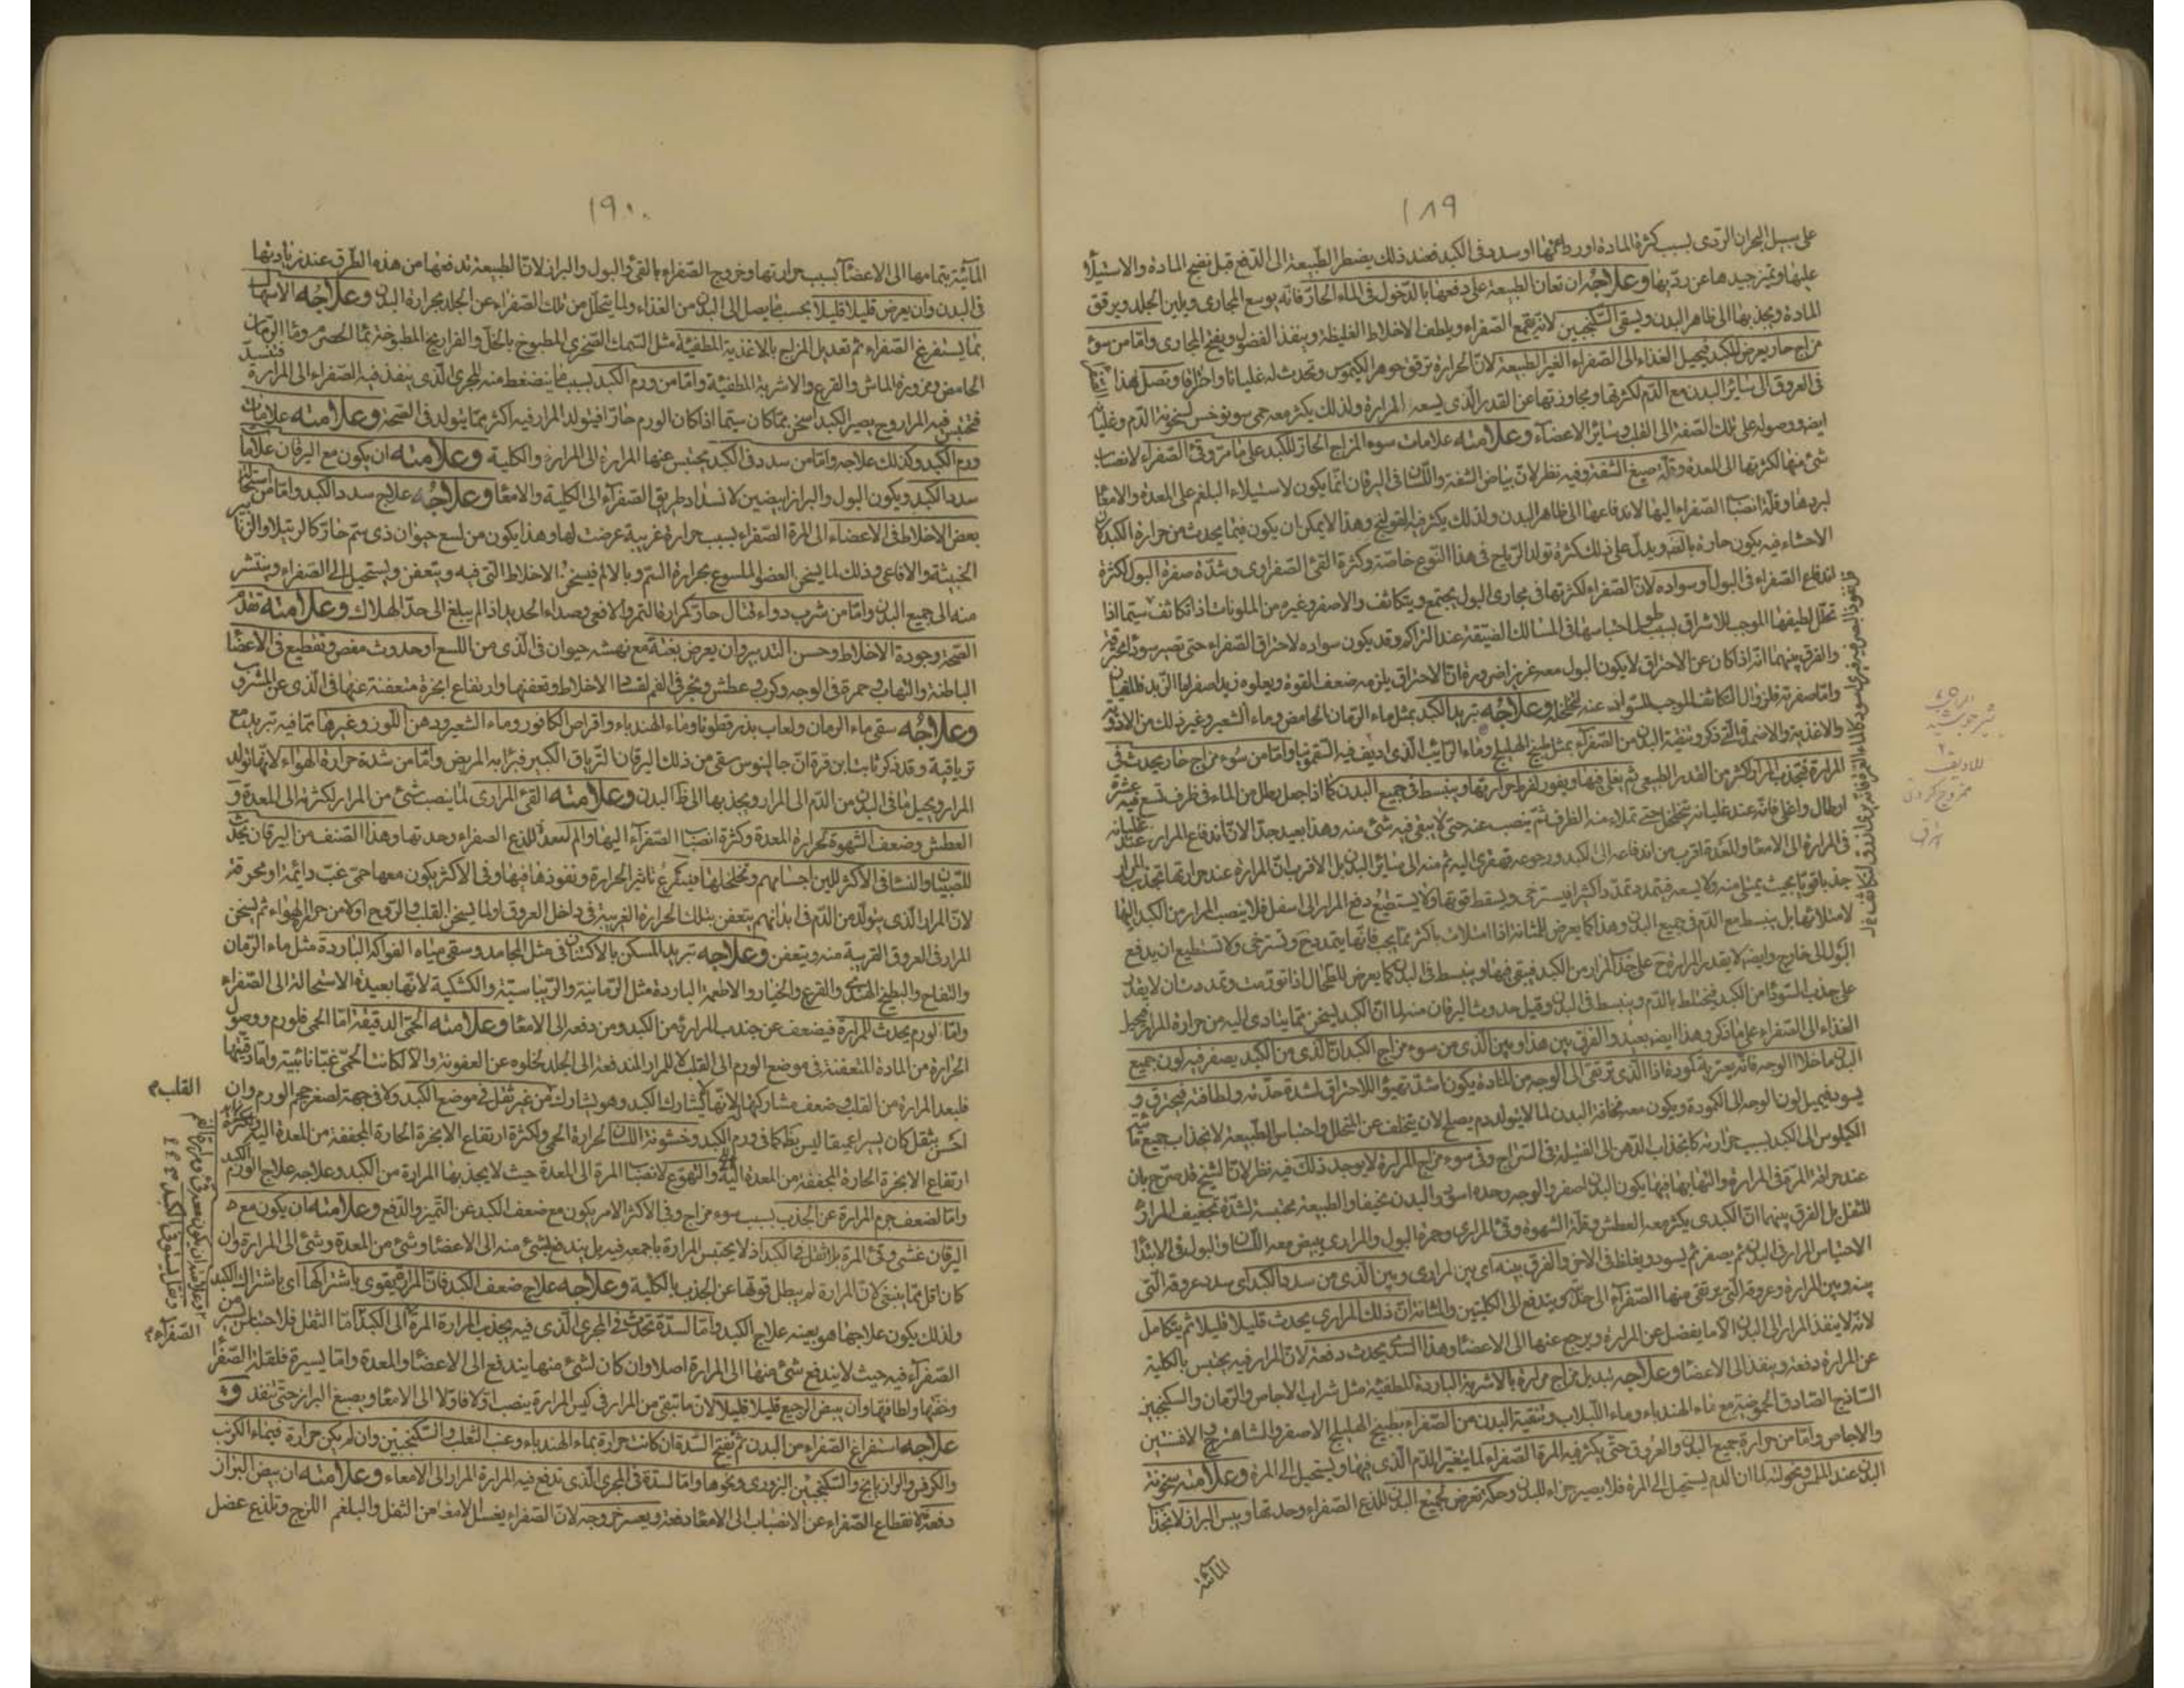 ١٨٩
على سبيل البحران الردى بسبب كثرة المادة او رداءتها او سدد فى الكبد فعند ذلك يضطر الطبيعة الى الدفع قبل نضج المادة والاستيلاء
عليها وتميز جيدها عن رديها وعلاجه ان تعان الطبيعة على دفعها بالدخول فى الماء الحار فانه يوسع المجارى ويلين الجلد ويرقق
المادة ويجذبها الى ظاهر البدن ويسقى السكنجبين لانه يقمع الصفراء ويلطف الاخلاط الغليظة وينفذ الفضول ويفتح المجارى واما من سوء
مزاج حار يعرض للكبد فيحيل الغذاء الى الصفراء الغير الطبيعة لان الحرارة ترقق جوهر الكيموس وتحدث له غليانا واحتراقا وتصل لهذا
فى العروق الى سائر البدن مع الدم لكثرتها ومجاوزتها عن القدر الذى يسعه المرارة ولذلك يكثر معه حمى سونوخس لسخونة الدم وغليانه
ايضا ووصوله على تلك الصفة الى القلب وسائر الاعضاء وعلامته علامات سوء المزاج الحار للكبد على ما مر وقئ الصفراء لانصباب
شئ منها لكثرتها الى المعدة وقلة صبغ الشفة وفيه نظر لان بياض الشفة واللسان فى اليرقان انما يكون لاستيلاء البلغم على المعدة والامعاء
لبردها وقلة انصباب الصفراء اليها لاندفاعها الى ظاهر البدن ولذلك يكثر فيه القولنج وهذا لا يمكن ان يكون فيما يحدث من حرارة الكبد لان
الاحشاء فيه يكون حارة بالضرورة ويدل على ذلك كثرة تولد الرياح فى هذا النوع خاصة وكثرة القئ الصفراوى وشدة صفرة البول لكثرة
اندفاع الصفراء فى البول او سواده لان الصفراء لكثرتها فى مجارى البول يجتمع ويتكاثف والاصفر وغيره من الملونات اذا تكاثف سيما اذا
تحلل لطيفها الموجب للاشراق بسبب طول احتباسها فى المسالك الضيقة عند التراكم وقد يكون سواده لاحتراق الصفراء حتى تصير سوداء محترقة
والفرق بينهما انه اذا كان عن الاحتراق لا يكون البول معه غزيرا ضرورة ان الاحتراق يلزمه ضعف القوة ويعلوه زبد اصفر اما الزبد فللغليان
واما صفرته فلزوال التكاثف الموجب للسواد عنه لتخلخله وعلاجه تبريد الكبد بمثل ماء الرمان الحامض وماء الشعير وغير ذلك من الادوية
والاغذية والاضمدة التى ذكر وتنقية البدن من الصفراء بمثل طبيخ الهليلج وماء الرائب الذى اديف فيه السقمونيا واما من سوء مزاج حار يحدث فى
المرارة فتجذب المرار اكثر من القدر الطبيعى ثم يغلى فيها ويفور لفرط حرارتها وينبسط فى جميع البدن كما اذا جعل رطل من الماء فى ظرف تسع فيه عشرة
ارطال واغلى فانه عند غليانه يتخلخل حتى تملاء منه الظرف ثم ينصب عنه حتى لا يبقى فيه شئ منه وهذا بعيد جدا لان اندفاع المرار عند غليانه
فى المرارة الى الامعاء والمعدة اقرب من اندفاعه الى الكبد ورجوعه قهقرى اليه ثم منه الى سائر البدن بل الاقرب ان المرارة عند حرارتها تجذب المرار
جذبا قويا بحيث يمتلى منه ولا يسعه فيتمدد تمددا كثيرا فيسترخى ويسقط قوتها ولا يستطيع دفع المرار الى اسفل فلا ينصب المرار من الكبد اليها
لامتلائها بل ينبسط مع الدم فى جميع البدن وهذا كما يعرض للمثانة اذا امتلات باكثر مما يجب فانها يتمدد ح وتسترخى ولا تستطيع ان يدفع
البول الى خارج وايضا لا يقدر المرارة ح على جذب المرار من الكبد فيبقى فيها وينبسط فى البدن كما يعرض للطحال اذا تورمت وتمددت ان لا يقدر
على جذب السوداء من الكبد فيختلط بالدم وينبسط فى البدن وقيل حدوث اليرقان منه لما ان الكبد يسخن بما يتادى اليه من حرارة المرار فيحيل
الغذاء الى الصفراء على ما ذكر وهذا ايضا بعيد والفرق بين هذا وبين الذى من سوء مزاج الكبد ان الذى من الكبد يصفر فيه لون جميع
البدن ما خلا الوجه فانه يعتريه كمودة اذا الذى ترتقى الى الوجه من المادة يكون اشد تهيؤ للاحتراق لشدة حدته ولطافته فيحترق و
يسود فيميل لون الوجه الى الكمودة ويكون معه نحافة البدن لما لا يتولد دم يصلح لان يتخلف عن المتحلل واحتباس الطبيعة لانجذاب جميع مائية
الكيلوس الى الكبد بسبب حرارته كانجذاب الدهن الى الفتيلة فى السراج وفى سوء مزاج المرارة لا يوجد ذلك فيه نظر لان الشيخ قد صرح بان
عند حرافة المرة فى المرارة والتهابها فيها يكون البدن اصفر والوجه وحده اسود والبدن نحيفا والطبيعة محتبسة لشدة تجفيف المرار
للثفل بل الفرق بينهما ان الكبدى يكثر معه العطش وقلة الشهوة وقئ المرارى وحمرة البول والمرارى يبيض معه اللسان والبول فى الابتداء
الاحتباس المرار فى البدن ثم يصفر ثم يسود ويغلظ فى الاخر والفرق بينه اى بين المرارى وبين الذى من سدد الكبد اى سدد عروقه التى
بينه وبين المرارة وعروقه التى يرتقى منها الصفراء الى حدبته ويندفع الى الكليتين والمثانة ان ذلك المرارى يحدث قليلا قليلا ثم يتكامل
لانه لا ينفذ المرار الى البدن الا ما يفضل عن المرارة ويرجع عنها الى الاعضاء وهذا السددى يحدث دفعة لان المرار فيه يحتبس بالكلية
عن المرارة دفعة وينفذ الى الاعضاء وعلاجه تبديل مزاج مرارة بالاشربة الباردة المطفئة مثل شراب الاجاص والرمان والسكنجبين
الساذج الصادق الحموضة مع ماء الهندباء وماء اللبلاب وتنقية البدن من الصفراء بطبيخ الهليلج الاصفر والشاهترج والافسنتين
والاجاص واما من حرارة جميع البدن والعروق حتى يكثر فيه المرة الصفراء لما يتغير الدم الذى فيها ويستحيل الى المرة وعلامته سخونة
البدن عند اللمس ونحولته لما ان الدم يستحيل الى المرة فلا يصير جزاء للبدن وحكة تعرض لجميع البدن للذع الصفراء وحدتها ويبس البراز لانجذاب
المائية
١٩٠
المائية بتمامها الى الاعضاء بسبب حرارتها وخروج الصفراء بالقئ والبول والبراز لان الطبيعة تدفعها من هذه الطرق عند زيادتها
فى البدن وان يعرض قليلا قليلا بحسب ما يصل الى البدن من الغذاء ولما يتحلل من تلك الصفراء عن الجلد بحرارة البدن وعلاجه الاسهال
بما يستفرغ الصفراء ثم تعديل المزاج بالاغذية المطفئة مثل السمك الصخرى المطبوخ بالخل والفراريج المطبوخة بماء الحصرم وماء الرمان
الحامض ومزورة الماش والقرع والاشربة المطفئة واما من ورم الكبد بسبب ما ينضغط منه المجرى الذى ينفذ فيه الصفراء الى المرارة فتنسد
فتحتبس فيه المرار وح يصير الكبد اسخن مما كان سيما اذا كان الورم حارا فيتولد المرار فيه اكثر مما يتولد فى الصحة وعلامته علامات
ورم الكبد وكذلك علاجه واما من سدد فى الكبد يحتبس عنها المرارة الى المرارة والكلية وعلامته ان يكون مع اليرقان علامات
سدد الكبد ويكون البول والبراز ابيضين لانسداد طريق الصفراء الى الكلية والامعاء وعلاجه علاج سدد الكبد واما من استحالة
بعض الاخلاط فى الاعضاء الى المرة الصفراء بسبب حرارة غريبة عرضت لها وهذا يكون من لسع حيوان ذى سم حار كالرتيلا والزنابير
الخبيثة والافاعى وذلك لما يسخن العضو الملسوع بحرارة السم وبالالم فيسخن الاخلاط التى فيه ويتعفن ويستحيل الى الصفراء وينتشر
منه الى جميع البدن واما من شرب دواء قتال حار كمرارة النمر والافعى وصداء الحديد اذا لم يبلغ الى حد الهلاك وعلامته تقدم
الصحة وجودة الاخلاط وحسن التدبير وان يعرض بغتة مع نهشة حيوان فى الذى من اللسع او حدوث مغص وتقطيع فى الاعضاء
الباطنة والتهاب وحمرة فى الوجه وكرب وعطش وبخر فى الفم لفساد الاخلاط وتعفنها وارتفاع ابخرة متعفنة عنها فى الذى عن المشروب
وعلاجه سقى ماء الرمان ولعاب بذر قطونا وماء الهندباء واقراص الكافور وماء الشعير ودهن اللوز وغيرها مما فيه تبريد مع
ترياقية وقد ذكر ثابت ابن قرة ان جالينوس سقى من ذلك اليرقان الترياق الكبير فبرا به المريض واما من شدة حرارة الهواء لانها تولد
المرار ويحيل ما فى البدن من الدم الى المرار ويجذبها الى ظاهر البدن وعلامته القئ المرارى لما ينصب شئ من المرار لكثرته الى المعدة و
العطش وضعف الشهوة لحرارة المعدة وكثرة انصباب الصفراء اليها والم المعدة للذع الصفراء وحدتها وهذا الصنف من اليرقان يحدث
للصبيان والنساء فى الاكثر للين اجسامهم وتخلخلها فيتسرع تاثير الحرارة ونفوذها فيها وفى الاكثر يكون معها حمى غب دائمة او محرقة
لان المرار الذى يتولد من الدم فى ابدانهم يتعفن بتلك الحرارة الغريبة فى داخل العروق اولما يسخن القلب والروح اولا من حر الهواء ثم يسخن
المرار فى العروق القريبة منه ويتعفن وعلاجه تبريد المسكن بالاكتنان فى مثل الجامد وسقى مياه الفواكه الباردة مثل ماء الرمان
والتفاح والبطيخ الهندى والقرع والخيار والاطعمة الباردة مثل الرمانية والريباسية والكشكية لانها بعيدة الاستحالة الى الصفراء
واما لورم يحدث للمرارة فيضعف عن جذب المرارة من الكبد ومن دفعه الى الامعاء وعلامته الحمى الدقيقة اما الحمى فلورم ووصول
الحرارة من المادة المتعفنة فى موضع الورم الى القلب لا للمرار المندفعة الى الجلد لخلوه عن العفونة والا لكانت الحمى غبا نائبية واما دقيتها
فلبعد المرارة من القلب وضعف مشاركتها لانها يشارك الكبد وهو يشارك من غير ثقل فى موضع الكبد ولا فى جهته لصغر حجم الورم وان
احس بثقل كان يسيرا عميقا ليس يظهر كما فى ورم الكبد وخشونة اللسان لحرارة الحمى ولكثرة ارتفاع الابخرة الحارة المجففة من المعدة اليه
ارتفاع الابخرة الحارة المجففة من المعدة اليه والتهوع لانصباب المرة الى المعدة حيث لا يجذبها المرارة من الكبد وعلاجه علاج الورم الكبد
واما لضعف جرم المرارة عن الجذب بسبب سوء مزاج وفى الاكثر الامر يكون مع ضعف الكبد عن التميز والدفع وعلامته ان يكون مع
اليرقان غشى وقئ المرة بلا ثقل فى الكبد اذ لا يحتبس المرارة باجمعه فيه بل يندفع شئ منه الى الاعضاء وشئ من المعدة وشئ الى المرارة وان
كان اقل مما ينبغى لان المرارة لم يبطل قوتها عن الجذب بالكلية وعلاجه علاج ضعف الكبد فان المرارة يقوى باشتراكها اى باشتراك الكبد
ولذلك يكون علاجها هو بعينه علاج الكبد واما لسدة تحدث فى المجرى الذى فيه يجذب المرارة المرة الى الكبد اما الثقل فلاحتباس
الصفراء فيه حيث لا يندفع شئ منها الى المرارة اصلا وان كان لشئ منها يندفع الى الاعضاء والمعدة واما يسيرة فلقلة الصفراء
وخفتها ولطافتها وان يبيض الرجيع قليلا قليلا لان ما تبقى من المرار فى كيس المرارة ينصب اولا فاولا الى الامعاء ويصبغ البراز حتى تنفذ و
علاجه استفراغ الصفراء من البدن ثم يفتح السدة ان كانت حرارة بماء الهندباء وعنب الثعلب والسكنجبين وان لم يكن حرارة فبماء الكرنب
والكرفس والرازيانج والسكنجبين البزورى ونحوها واما لسدة فى المجرى الذى تدفع فيه المرارة المرار الى الامعاء وعلامته ان يبيض البراز
دفعة لانقطاع الصفراء عن الانصباب الى الامعاء دفعة ويعسر خروجه لان الصفراء يغسل الامعاء من الثفل والبلغم اللزج وتلذع عضل
القلب
الصفراء